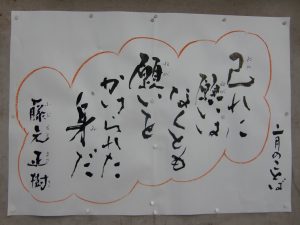 二月のことば
己れに
願いは
なくとも
願いを
かけられた
身だ
藤元正樹